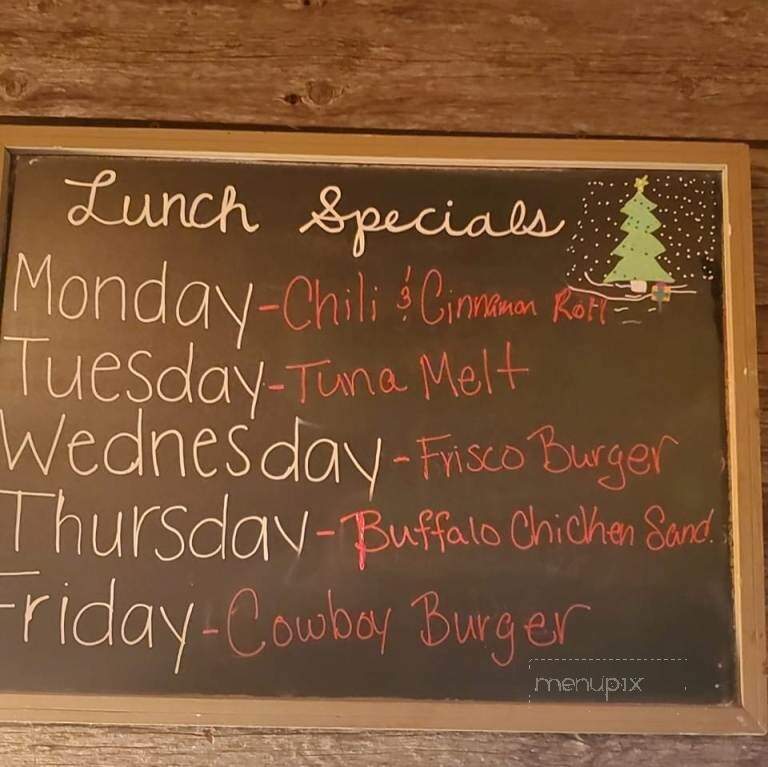 Lunch Specials
Monday-Chili & Cinnamon Roll
Tuesday-Tuna Melt
Wednesday-Frisco Burger
Thursday-Buffalo Chicken Sand.
Friday-Cowboy Burger
menupix